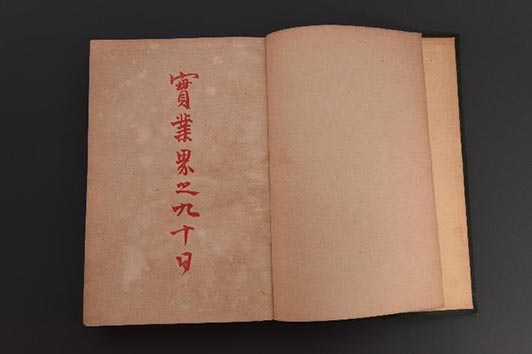 實業界之九十日